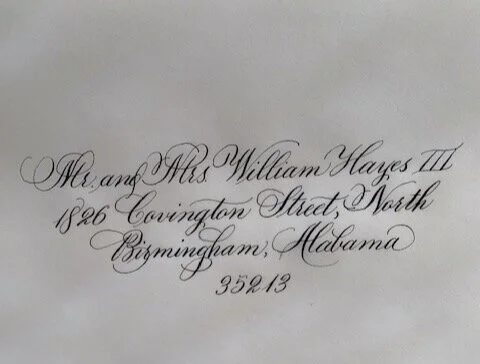 Mr. and Mrs William Hayes III
1826 Covington Street, North
Birmingham, Alabama
35213